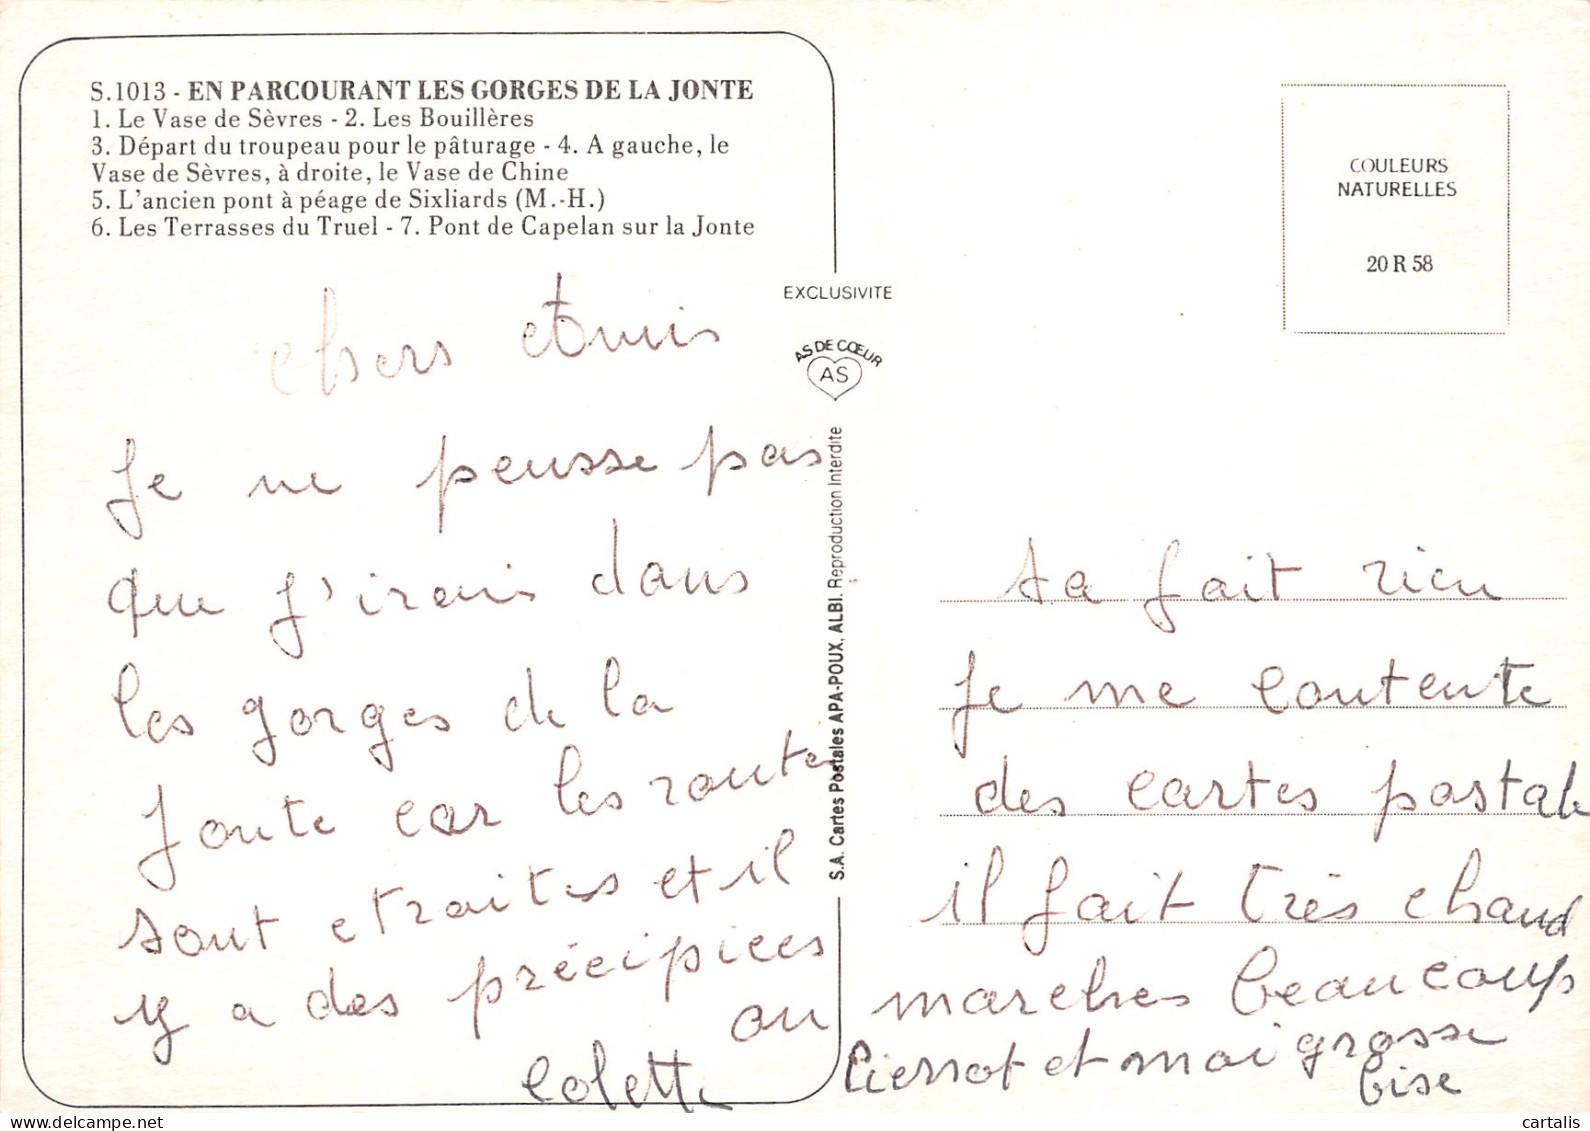 S.1013 - EN PARCOURANT LES GORGES DE LA JONTE
1. Le Vase de Sèvres - 2. Les Bouillères
3. Départ du troupeau pour le pâturage - 4. A gauche, le
Vase de Sèvres, à droite, le Vase de Chine
5. L'ancien pont à péage de Sixliards (M.-H.)
6. Les Terrasses du Truel - 7. Pont de Capelan sur la Jonte
chers
Je ne pensse pas
que j'irais dans
les gorges de la
Jonte car les routes
sont etroites et il
y a des précipices
Colette
EXCLUSIVITE
AS DE CŒUR
AS
S.A. Cartes Postales APA-POUX, ALBI. Reproduction Interdite
COULEURS
NATURELLES
20 R 58
sa fait rien
Je me contente
des cartes postale
il fait très chaud
on marches beaucoup
Pierrot et moi grosse
bise
cartalis
delcampe.net